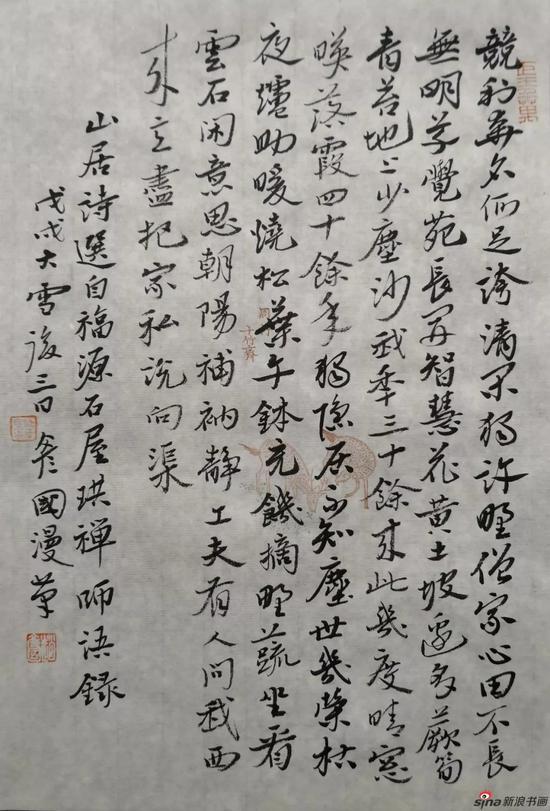 競利奔名何足誇清閑獨許野僧家心田不長
無明草覺苑長開智慧花黃土坡邊多蕨筍
青苔地上少塵沙我年三十餘來此幾度晴窗
映落霞四十餘年獨隱居不知塵世幾榮枯
夜爐助暖燒松葉午鉢充饑摘野蔬坐看
雲石閑意思朝陽補衲靜工夫有人問我西
來意盡把家私說向渠
山居詩選自福源石屋珙禪師語錄
戊戌大雪後三日國漫草
十竹齋
sina新浪书画